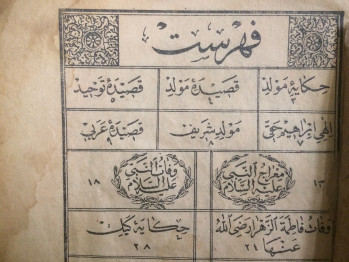 فهرست
حكاية مولد قصيدة مولد قصيدة توحيد
الهى ابراهيم حقى مولد شريف قصيدة عربى
معراج النبى عليه السلام ١٣ وفات النبى عليه السلام ١٨
وفات فاطمة الزهرا رضى الله عنها ٢١ حكاية كيك ٢٨